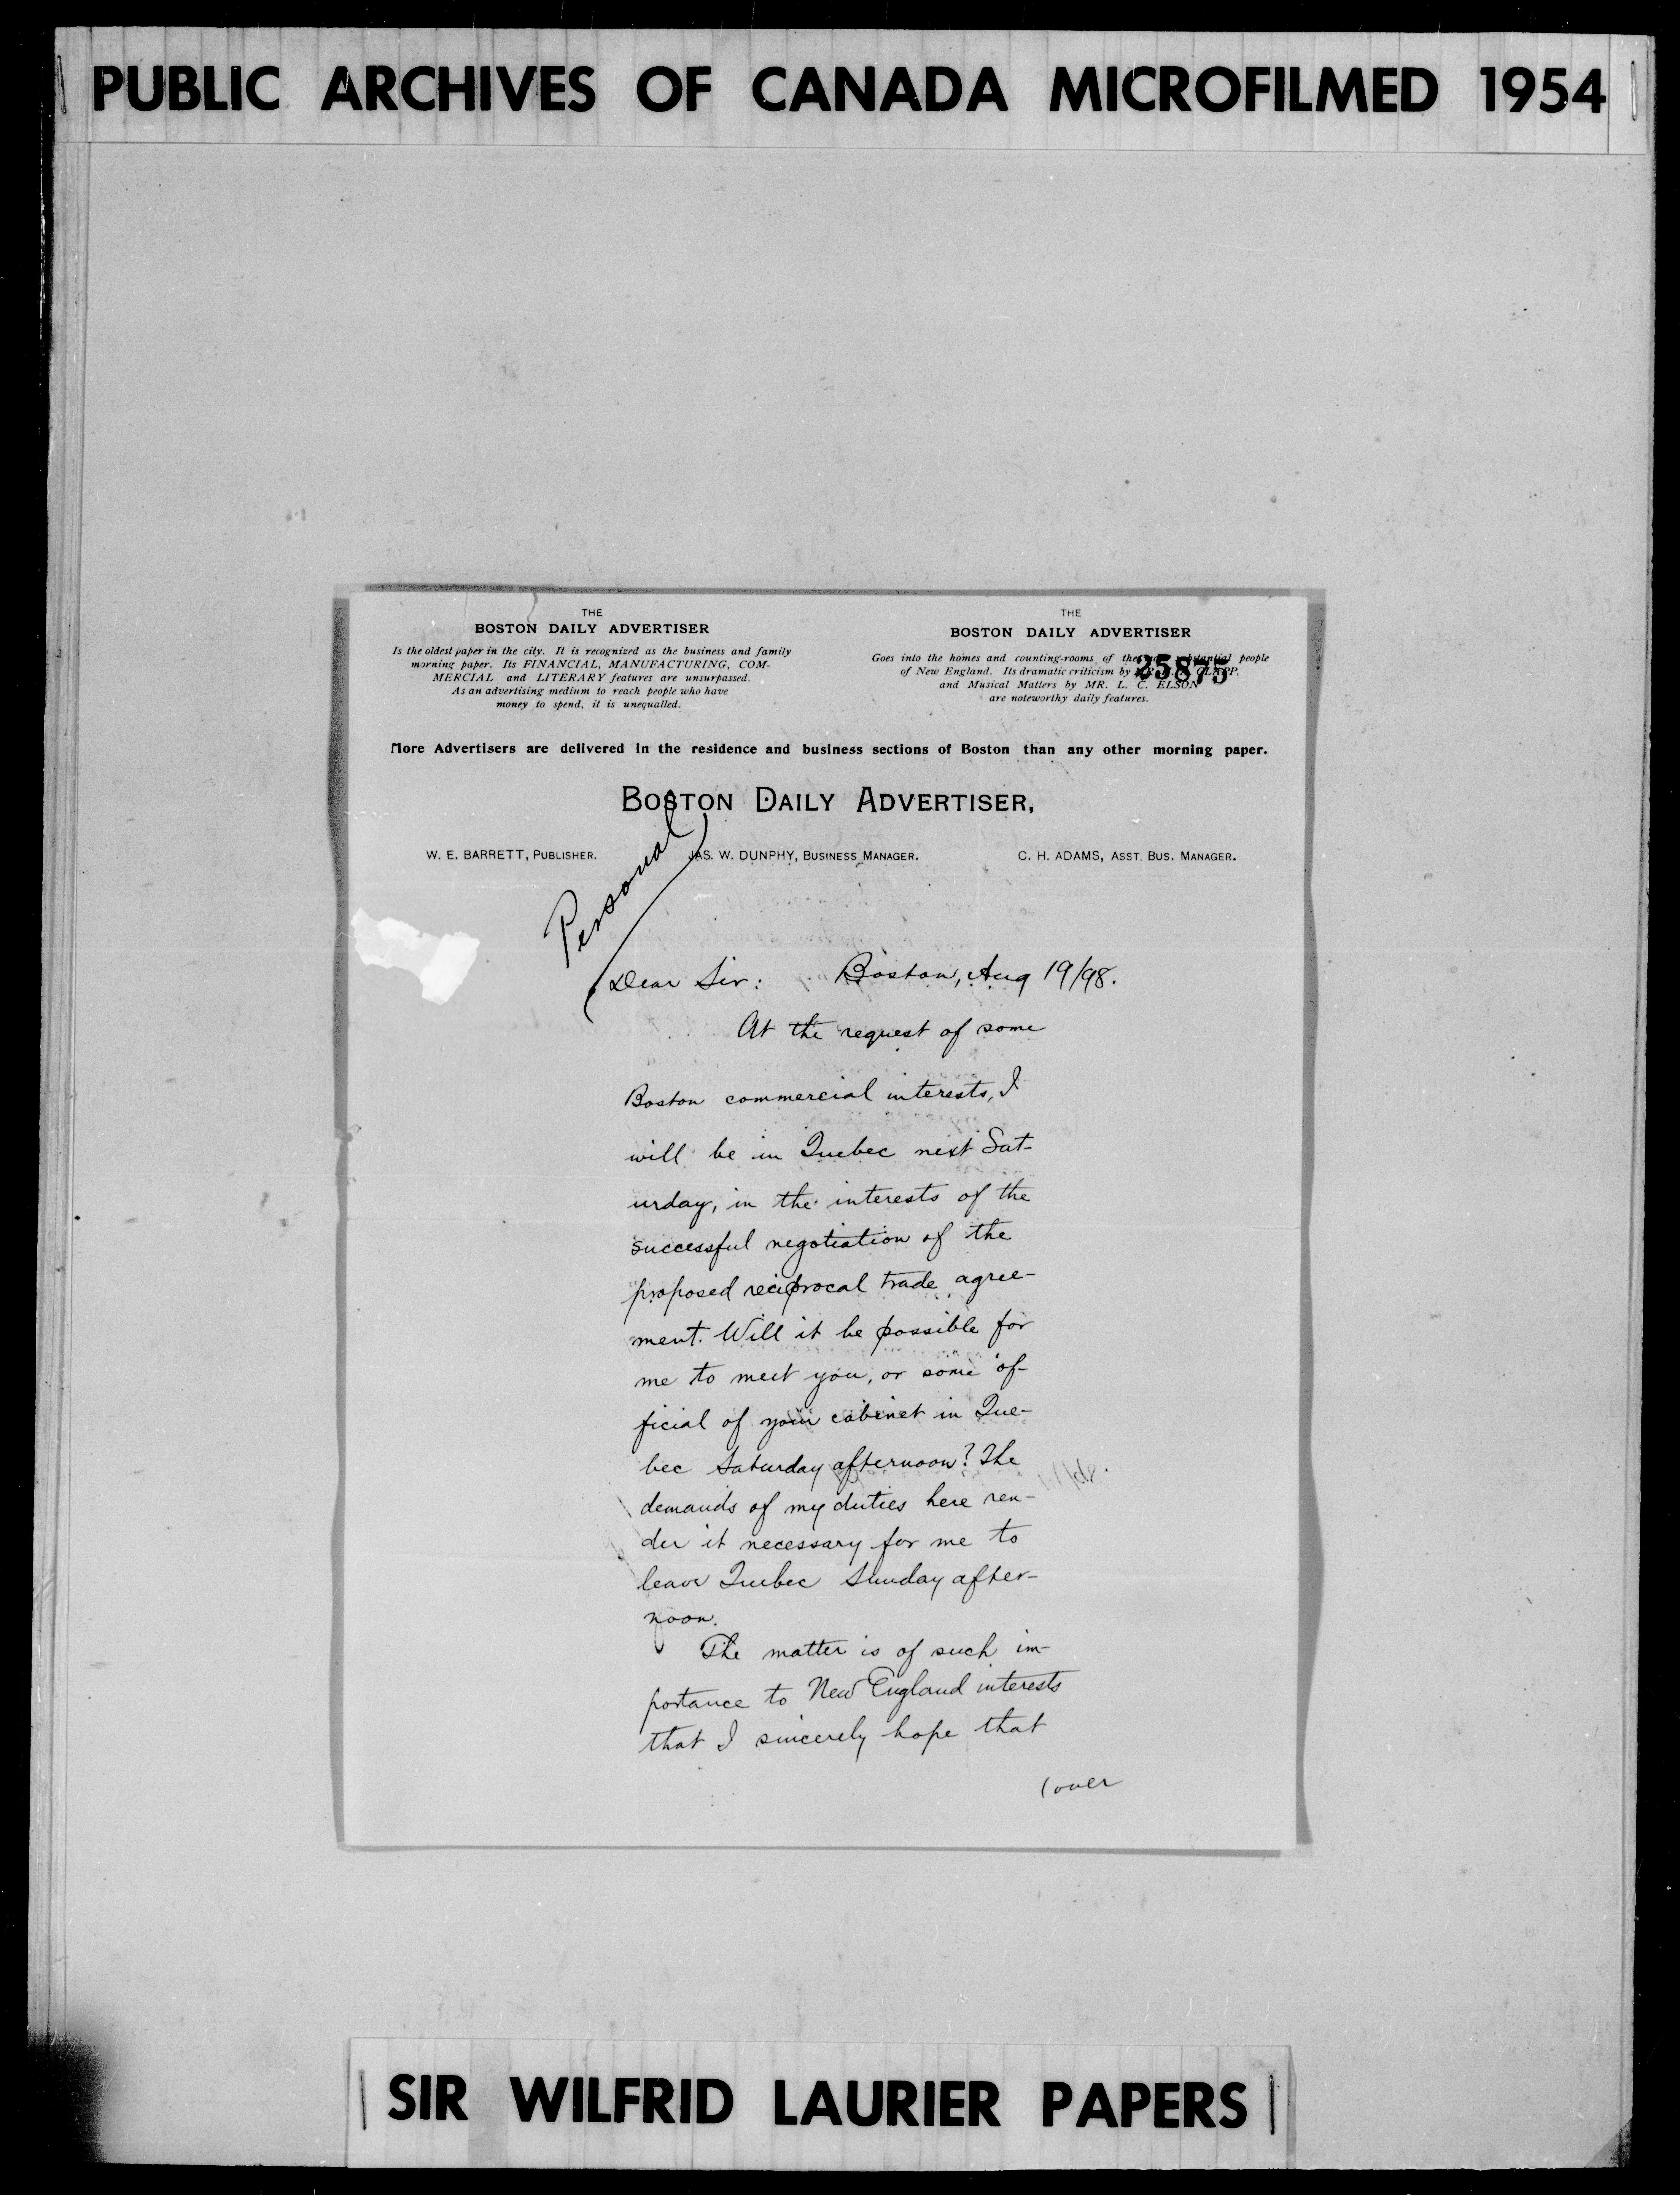 PUBLIC ARCHIVES OF CANADA MICROFILMED 1954
THE
BOSTON DAILY ADVERTISER
Is the oldest paper in the city. It is recognized as the business and family
morning paper. Its FINANCIAL, MANUFACTURING, COM-
MERCIAL and LITERARY features are unsurpassed.
As an advertising medium to reach people who have
money to spend, it is unequalled.
THE
BOSTON DAILY ADVERTISER
Goes into the homes and counting-rooms of the substantial people
of New England. Its dramatic criticism by
and Musical Matters by MR. L. C. ELSON
are noteworthy daily features.
25875
More Advertisers are delivered in the residence and business sections of Boston than any other morning paper.
BOSTON DAILY ADVERTISER,
W. E. BARRETT, PUBLISHER.
JAS. W. DUNPHY, BUSINESS MANAGER.
C. H. ADAMS, ASST. BUS. MANAGER.
Personal
Dear Sir: Boston, Aug 19/98.
At the request of some
Boston commercial interests, I
will be in Quebec next Sat-
urday, in the interests of the
successful negotiation of the
proposed reciprocal trade agree-
ment. Will it be possible for
me to meet you, or some of-
ficial of your cabinet in Que-
bec Saturday afternoon? The
demands of my duties here ren-
der it necessary for me to
leave Quebec Sunday after-
noon.
The matter is of such im-
portance to New England interests
that I sincerely hope that
(over
SIR WILFRID LAURIER PAPERS